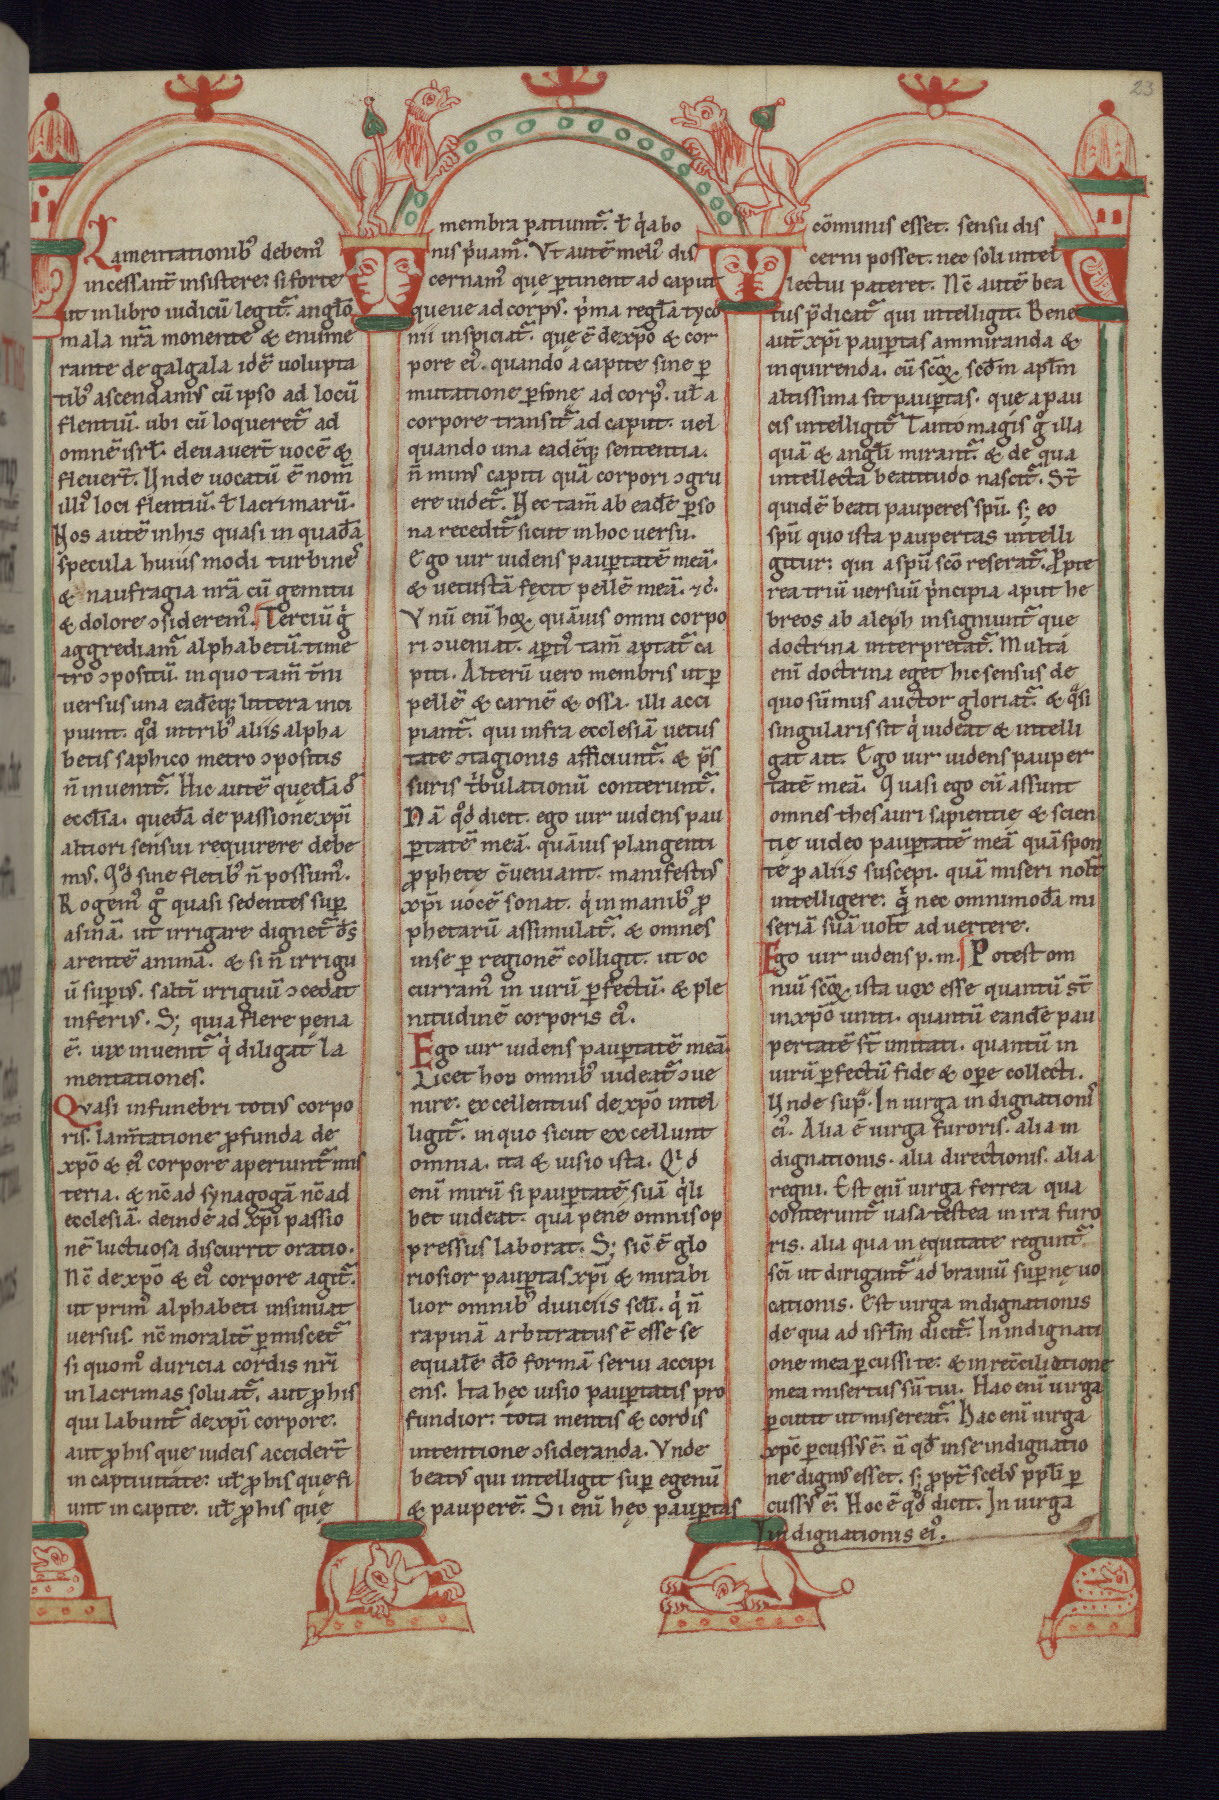 23
Lamentationibꝰ debemꝰ
incessant̄ insistere: si forte
ut in libro iudicū legit᷑. anglo
mala nr̄a monente & enume
rante de galgala idē uolupta
tibꝰ ascendamꝰ cū ipso ad locū
flentiū. ubi cū loqueret᷑ ad
omnē isrł. eleuauert̄ uocē &
fleuert̄. Unde uocatū ē nom̄
illiꝰ loci flentiū. ł lacrimarū.
Nos autē in his quasi in quadā
specula huiusmodi turbines
& naufragia nr̄a cū gemitu
& dolore ↄsideremꝰ. Terciū gͥ
aggrediamꝰ alphabetū. time
tro ↄpositū. in quo tam̄ t̄ni
versus una eadēq; littera inci
piunt. qd̄ in tribꝰ aliis alpha
betis saphico metro ↄpositis
n̄ inuenit᷑. Hic autē quedā d̄
eccl̄ia. quedā de passione xp̄i
altiori sensui requirere debe
mꝰ. Qd̄ sine fletibꝰ n̄ possumꝰ.
Rogemꝰ gͦ quasi sedentes suꝑ
asinā. ut irrigare dignet᷑ dꝰs
arentē animā. & si n̄ irrigu
ū suꝑiꝰ. saltī irriguū ↄcedat
inferiꝰ. S; quia flere pena
ē. uix inuenit᷑ qͥ diligat la
mentationes.
Quasi in funebri totiꝰ corpo
ris. lam̄tatione ꝓfunda de
xp̄o & eiꝰ corpore aperiunt᷑ mis
teria. & nc̄ ad synagogā nc̄ ad
ecclesiā. deinde ad xp̄i passio
nē luctuosa discurrit oratio.
Nc̄ de xp̄o & eiꝰ corpore agit᷑.
ut primꝰ alphabeti insinuat
versus. nc̄ moralit̄ ꝑmiscet᷑
si quomͦ duricia cordis nr̄i
in lacrimas soluat᷑. aut ꝓ his
qui labunt᷑ de xp̄i corpore.
aut ꝓ his que iudeis accidert̄
in captiuitate: ut̄ ꝓ his que fi
unt in capite. ut̄ ꝓ his quę
membra patiunt᷑. ł qͥ a bo
nis pͥuam᷑. Vt autē meliꝰ dis
cernamꝰ que ꝑtinent ad caput
queue ad corpꝰ. pͥma regła tyco
nii inspiciat᷑. quę ē de xp̄o & cor
pore eiꝰ. quando a capite sine ꝑ
mutatione ꝑsonę ad corpꝰ. ut̄ a
corpore transit᷑ ad caput. vel
quando una eadēq; sententia.
n̄ minꝰ capiti quā corpori ↄgru
ere uidet᷑. Hec tam̄ ab eadē ꝑso
na recedit᷑ sicut in hoc versu.
Ego uir uidens pauꝑtatē meā.
& uetustā fecit pellē meā. ⁊c̄.
Vnū enī hoꝝ. quāuis omni corpo
ri ↄueniat. aꝑtiꝰ tam̄ aptat᷑ ca
piti. Alterū uero membris ut ꝑ
pellē & carnē & ossa. illi acci
piant᷑. qui infra ecclesiā uetus
tate ↄtagionis afficiunt᷑. & p̄s
suris tͥbulationū conterunt᷑.
Nā qd̄ dicit. ego uir uidens pau
ꝑtatē meā. quāuis plangenti
ꝓphete c̄ueniant. manifestiꝰ
xp̄i uocē sonat. qͥ in manibꝰ ꝓ
phetarū assimulat᷑. & omnes
in se ꝑ regionē colligit. ut oc
curramꝰ in uirū ꝑfectū. & ple
nitudinē corporis eiꝰ.
Ego uir uidens pauꝑtatē meā.
Licet hoc omnibꝰ uideat᷑ ↄue
nire. excellentius de xp̄o intel
ligit᷑. in quo sicut excellunt
omnia. ita & uisio ista. Qd̄
enī mirū si pauꝑtatē suā qͥli
bet uideat. qua pene omnis op
pressus laborat. S; sic̄ ē glo
riosior pauꝑtas xp̄i & mirabi
lior omnibꝰ diuiciis sc̄li. qͥ n̄
rapinā arbitratus ē esse se
equalē dō formā serui accipi
ens. Ita hęc uisio pauꝑtatis pro
fundior: tota mentis & cordis
intentione ↄsideranda. Vnde
beatꝰ qui intelligit suꝑ egenū
& pauperē. Si enī hęc pauꝑtas
cōmunis esset. sensu dis
cerni posset. nec soli intel
lectui pateret. Nc̄ autē bea
tus p̄dicat᷑ qui intelligit. Bene
aut̄ xp̄i pauꝑtas ammiranda &
inquirenda. cū sc̄oꝝ. scd̄m apl̄m
altissima sit pauꝑtas. que a pau
cis intelligit᷑ Tanto magis gͦ illa
quā & angli mirant᷑. & de qua
intellecta beatitudo nascit᷑. St̄
quidē beati pauperes spū. s; eo
spū quo ista paupertas intelli
gitur: qui a spū sc̄o reserat᷑. Ꝓpte
rea triū versuū pͥncipia aput he
breos ab aleph insigniunt᷑ que
doctrina interpretat᷑. Multa
enī doctrina eget hic sensus de
quo sūmus auctor gloriat᷑. & qͣsi
singularis sit qͥ uideat & intelli
gat ait. Ego uir uidens pauper
tatē meā. Quasi ego cū assunt
omnes thesauri sapientię & scien
tię uideo pauꝑtatē meā quā spon
te ꝓ aliis suscepi. quā miseri nolt̄
intelligere: qͥ nec omnimodā mi
seriā suā uolt̄ aduertere.
Ego uir uidens p. m. Potest om
niū sc̄oꝝ. ista uox esse quantū st̄
in xp̄o uniti. quantū eandē pau
pertatē st̄ imitati. quantū in
uirū ꝑfectū fide & oꝑe collecti.
Unde suꝑ. In uirga indignationis
eiꝰ. Alia ē uirga furoris. alia in
dignationis. alia directionis. alia
regni. Est enī uirga ferrea qua
conterunt᷑ uasa testea in ira furo
ris. alia qua in equitate regunt᷑
sc̄i ut dirigant᷑ ad brauiū suꝑnę uo
cationis. Est uirga indignationis
de qua ad isrł̄m dicit᷑. In indignati
one mea ꝑcussi te: & in rec̄ciliatione
mea misertus sū tui. Hac enī uirga
ꝑcutit ut misereat᷑. Hac enī uirga
xp̄c ꝑcussꝰ ē. n̄ qd̄ in se indignatio
ne dignꝰ esset. s; ꝓpt̄ scelꝰ ppłi ꝑ
cussꝰ ē. Hoc ē qd̄ dicit. In uirga
indignationis eiꝰ.